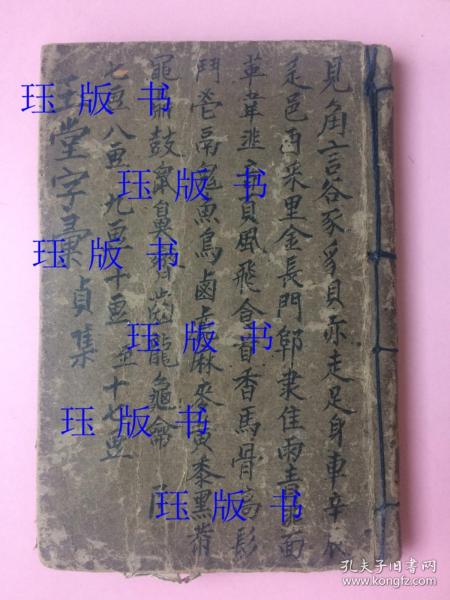 見角言谷豕豸貝赤走足身車辛辰
辵邑酉釆里金長門阜隶隹雨青非面
革韋韭音頁風飛食首香馬骨高髟
鬥鬯鬲鬼魚鳥鹵鹿麻麥黃黍黑黹
黽鼎鼓鼠鼻齊齒龍龜龠
七畫八畫九畫十畫至十七畫
玉堂字彙貞集
珏版书
珏版书
珏版书
珏版书
珏版书
珏版书
孔夫子旧书网
www.kongfz.com